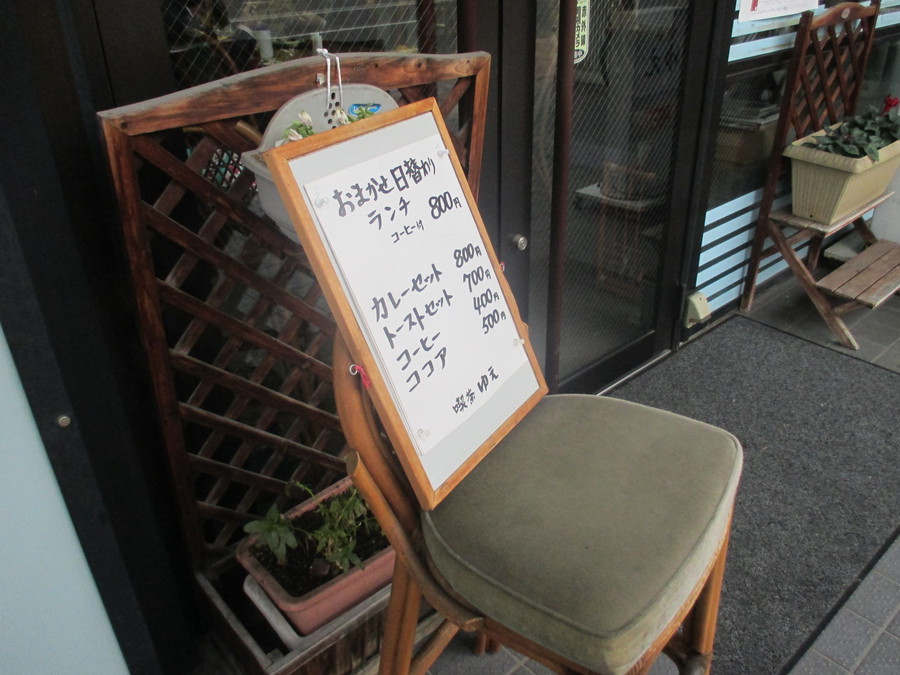 おまかせ日替わり
ランチ 800円
コーヒー付
カレーセット 800円
トーストセット 700円
コーヒー 400円
ココア 500円
喫茶 ゆえ